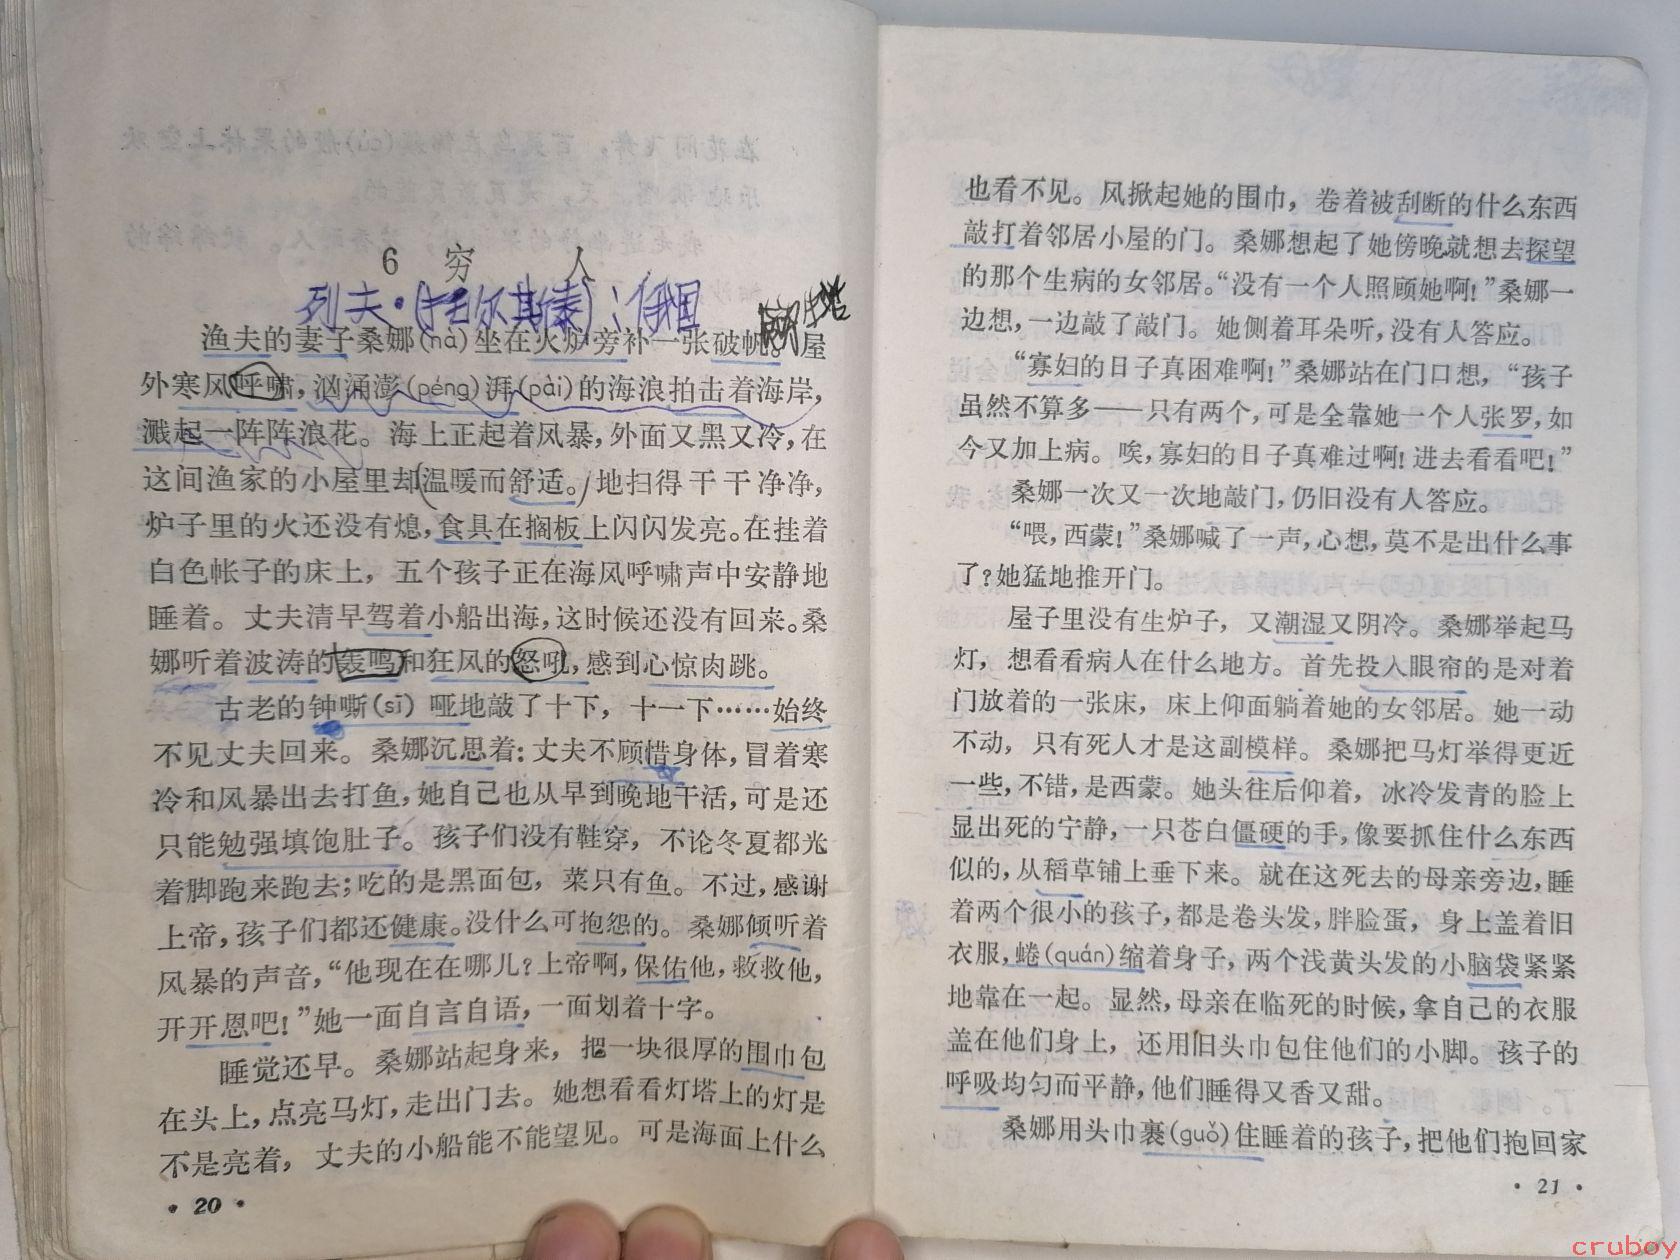 6 穷 人
列夫·托尔斯泰 俄国
渔夫的妻子桑娜(nà)坐在火炉旁补一张破帆。屋
外寒风呼啸,汹涌澎(péng)湃(pài)的海浪拍击着海岸,
溅起一阵阵浪花。海上正起着风暴,外面又黑又冷,在
这间渔家的小屋里却温暖而舒适。地扫得干干净净,
炉子里的火还没有熄,食具在搁板上闪闪发亮。在挂着
白色帐子的床上，五个孩子正在海风呼啸声中安静地
睡着。丈夫清早驾着小船出海,这时候还没有回来。桑
娜听着波涛的轰鸣和狂风的怒吼,感到心惊肉跳。
古老的钟嘶(sī)哑地敲了十下，十一下……始终
不见丈夫回来。桑娜沉思着:丈夫不顾惜身体,冒着寒
冷和风暴出去打鱼,她自己也从早到晚地干活,可是还
只能勉强填饱肚子。孩子们没有鞋穿，不论冬夏都光
着脚跑来跑去;吃的是黑面包，菜只有鱼。不过,感谢
上帝,孩子们都还健康。没什么可抱怨的。桑娜倾听着
风暴的声音,“他现在在哪儿?上帝啊,保佑他,救救他,
开开恩吧!”她一面自言自语,一面划着十字。
睡觉还早。桑娜站起身来，把一块很厚的围巾包
在头上,点亮马灯,走出门去。她想看看灯塔上的灯是
不是亮着，丈夫的小船能不能望见。可是海面上什么
· 20 ·
也看不见。风掀起她的围巾，卷着被刮断的什么东西
敲打着邻居小屋的门。桑娜想起了她傍晚就想去探望
的那个生病的女邻居。“没有一个人照顾她啊!”桑娜一
边想,一边敲了敲门。她侧着耳朵听,没有人答应。
“寡妇的日子真困难啊!”桑娜站在门口想，“孩子
虽然不算多——只有两个,可是全靠她一个人张罗,如
今又加上病。唉,寡妇的日子真难过啊!进去看看吧!”
桑娜一次又一次地敲门,仍旧没有人答应。
“喂,西蒙!”桑娜喊了一声,心想,莫不是出什么事
了?她猛地推开门。
屋子里没有生炉子，又潮湿又阴冷。桑娜举起马
灯，想看看病人在什么地方。首先投入眼帘的是对着
门放着的一张床，床上仰面躺着她的女邻居。她一动
不动，只有死人才是这副模样。桑娜把马灯举得更近
一些,不错,是西蒙。她头往后仰着，冰冷发青的脸上
显出死的宁静,一只苍白僵硬的手,像要抓住什么东西
似的,从稻草铺上垂下来。就在这死去的母亲旁边,睡
着两个很小的孩子,都是卷头发,胖脸蛋，身上盖着旧
衣服,蜷(quán)缩着身子,两个浅黄头发的小脑袋紧紧
地靠在一起。显然,母亲在临死的时候,拿自己的衣服
盖在他们身上，还用旧头巾包住他们的小脚。孩子的
呼吸均匀而平静,他们睡得又香又甜。
桑娜用头巾裹(guǒ)住睡着的孩子,把他们抱回家
· 21 ·
cruboy